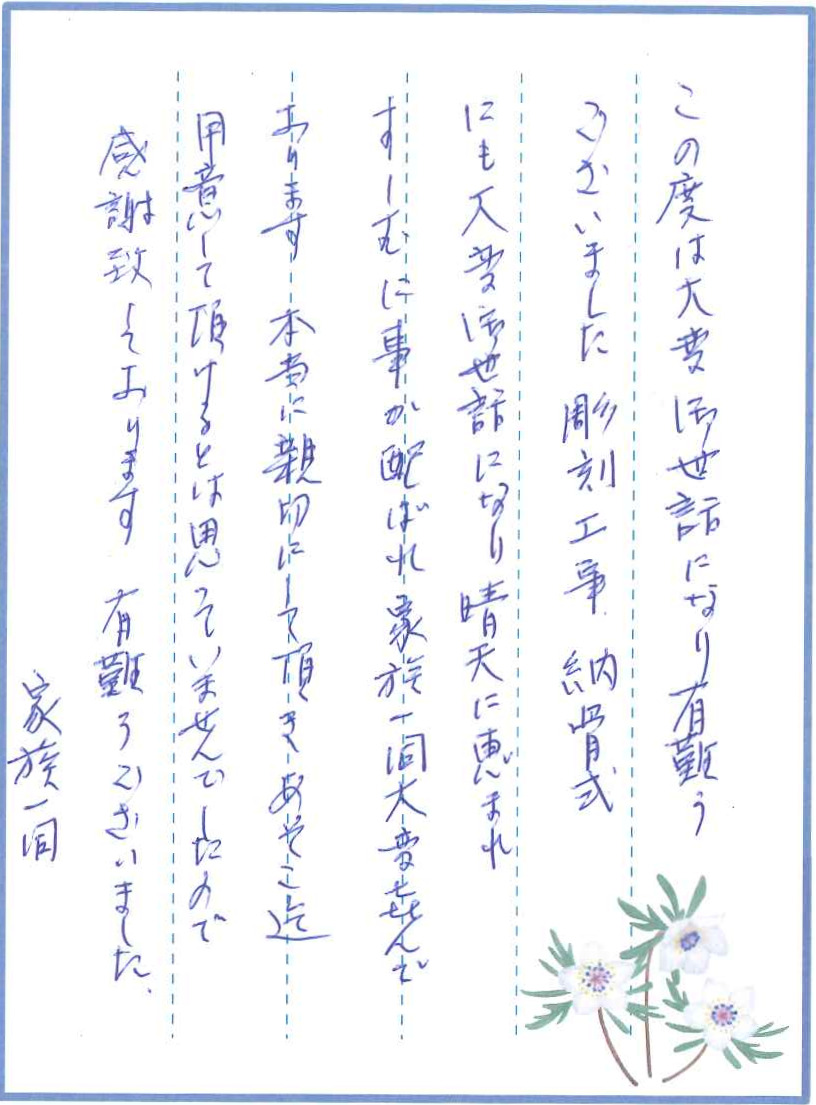 この度は大変御世話になり有難う
ございました 彫刻工事 納骨式
にも大変御世話になり晴天に恵まれ
すしむに事が配ばれ家族一同大変㐂んで
おります 本当に親切にして頂きあそこ迄
用意して頂けるとは思っていませんでしたので
感謝致しております 有難うございました、
家族一同